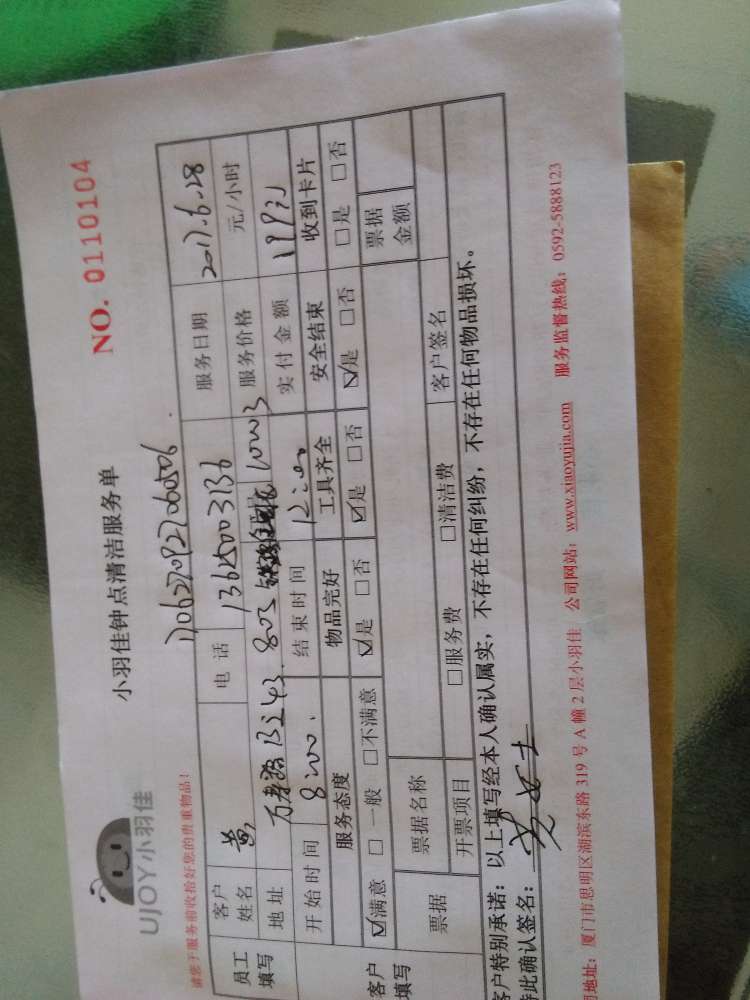 UJOY小羽佳
小羽佳钟点清洁服务单
NO. 0110104
请您于服务前收拾好您的贵重物品！
1706270927060506
员工填写 客户姓名 黄 电话 13615003136 服务日期 2017.6.28
地址 服务价格 元/小时
开始时间 8:00 结束时间 12:00 实付金额 199元
客户填写 服务态度 物品完好 工具齐全 安全结束 收到卡片
☑满意 □一般 □不满意 ☑是 □否 ☑是 □否 ☑是 □否 □是 □否
票据 票据名称 票据金额
开票项目 □服务费 □清洁费 客户签名
客户特别承诺：以上填写经本人确认属实，不存在任何纠纷，不存在任何物品损坏。
特此确认签名：
地址：厦门市思明区湖滨东路319号A幢2层小羽佳 公司网站：www.xiaoyujia.com 服务监督热线：0592-5888123